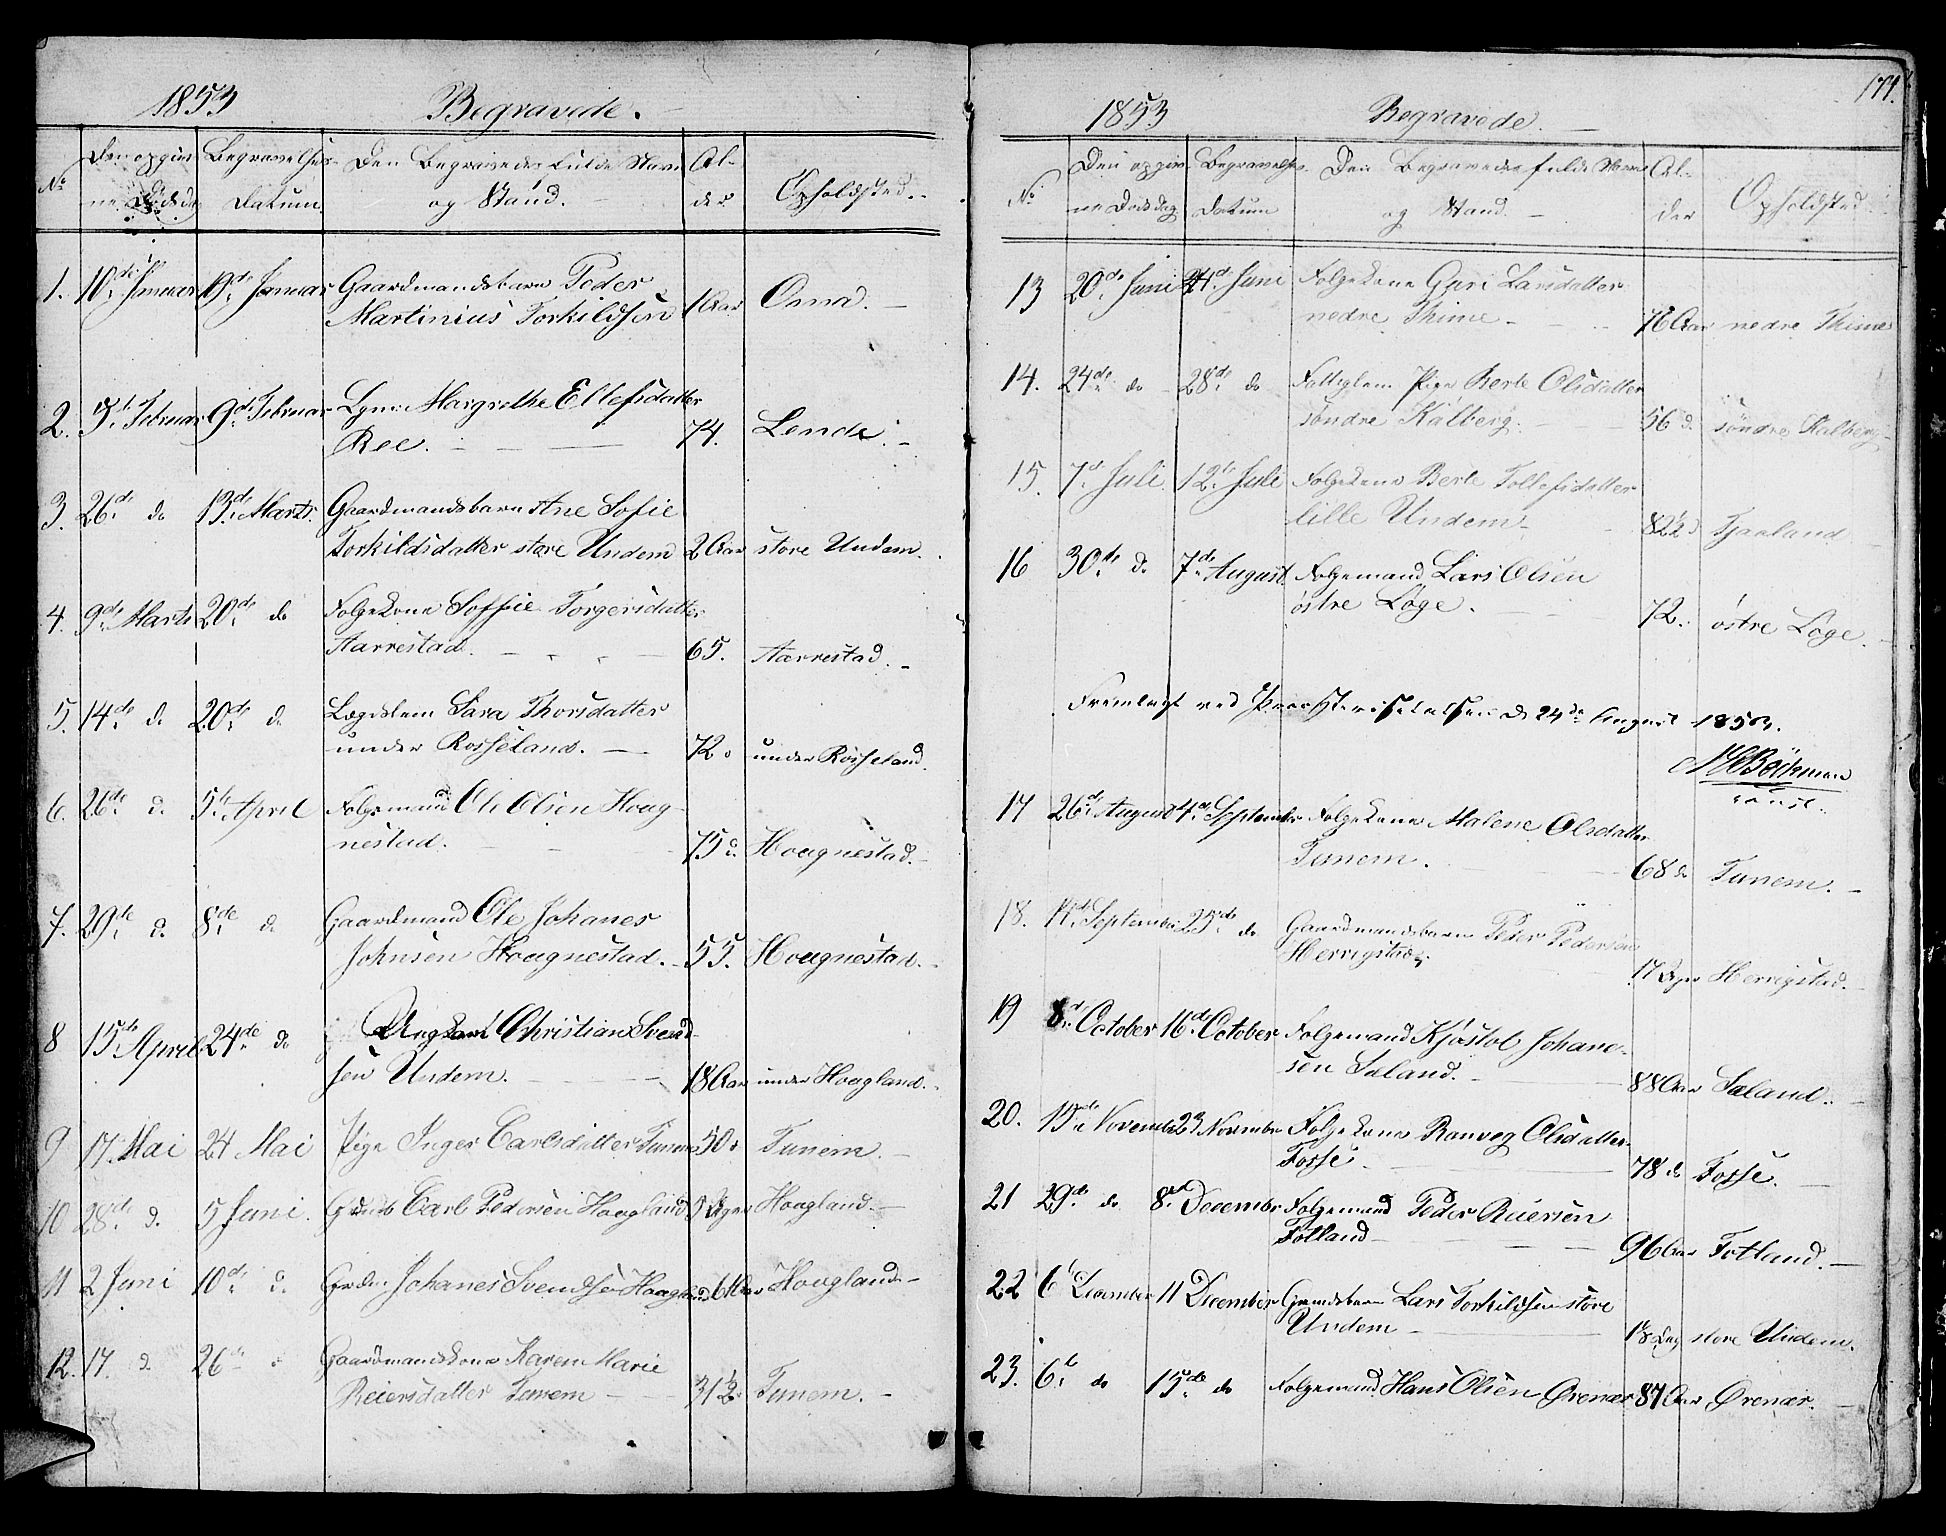 1853 Begravede.
No Den opgivne Dödsdag Begravelses Datum. Den Begravedes fulde Navn og Stand. Alder. Opholdssted.
1. 10de Januar 19de Januar Gaardmandsbarn Peder
Martinius Torkildsen 1 Aar Oma.
2. 3de Februar 9de Februar Lgm: Margrethe Ellefsdatter
Ree. 74. Lende.
3. 26de do 13de Marts. Gaardmandsbarn Ane Sofie
Torkildsdatter store Undem 2 Aar store Undem.
4. 9de Marts 20de do Folgekone Soffie Torgersdatter
Aarrestad. 65. Aarrestad.
5. 14de do 20de do Lægdslem Sara Thorsdatter
under Rosseland. 72. under Rosseland.
6. 26de d. 5te April Folgemand Ole Olsen Hoag-
nestad. 75 d. Hougnestad.
7. 29de d. 8de do Gaardmand Ole Johanes
Johnsen Hougnestad. 55. Hougnestad.
8 15de April 24de do Ungkarl Christian Svend-
sen Undem. 18 Aar under Hoagland.
9 17. Mai 24 Mai Pige Inger Carlsdatter Tunem 50. Tunem.
10 28de d. 5 Juni. Carl Pedersen Hoagland Hoagland.
11 2 Juni 10de d. Johanes Svendsen Hoagland 6 Hoagland
12. 17. d. 26de Gaardmandskone Karen Marie
Reiersdatter Tunem 31½. Tunem.
171.
1853 Begravede.
No. Den opgivne Dödsdag Begravelses Datum Den Begravedes fulde Navn og Stand. Alder Opholdsted
13 20de Juni 24de Juni Folgekone Guri Larsdatter
nedre Thime 76 Aar nedre Thime
14. 24de do 28de do Fattiglem Pige Berte Olsdatter
söndre Kalberg. 56 d. söndre Kalberg
15. 7de Juli 12te Juli Folgekone Berte Tollefsdatter
lille Undem 82½ d Tjaaland
16 30te d. 7de August Folgemand Lars Olsen
östre Löge. 72. östre Löge.
Fremlagt ved d 24de August 1853.
Böckman
const.
17 26de August 4de September Folgekone Malene Olsdatter
Tunem. 68 do Tunem.
18. September 25de do Gaardmandsbarn Peder Pedersen
Herrigstad. 17 Dage Herrigstad.
19 8de October 16de October Folgemand Kjöstol Johane-
sen Saland. 88 Aar Saland.
20. 15de November 23 November Folgekone Ranveg Olsdatter
Fosse. 78 do Fosse.
21 29de do 8de December Folgemand Peder Reiersen
Fotland 96 Aar Fotland.
22 6te December 11 December Gmdsbarn Lars Torkildsen store
Undem store Undem.
23. 6te do 15de do Folgemand Hans Olsen Örenær 87 Aar Örenær.